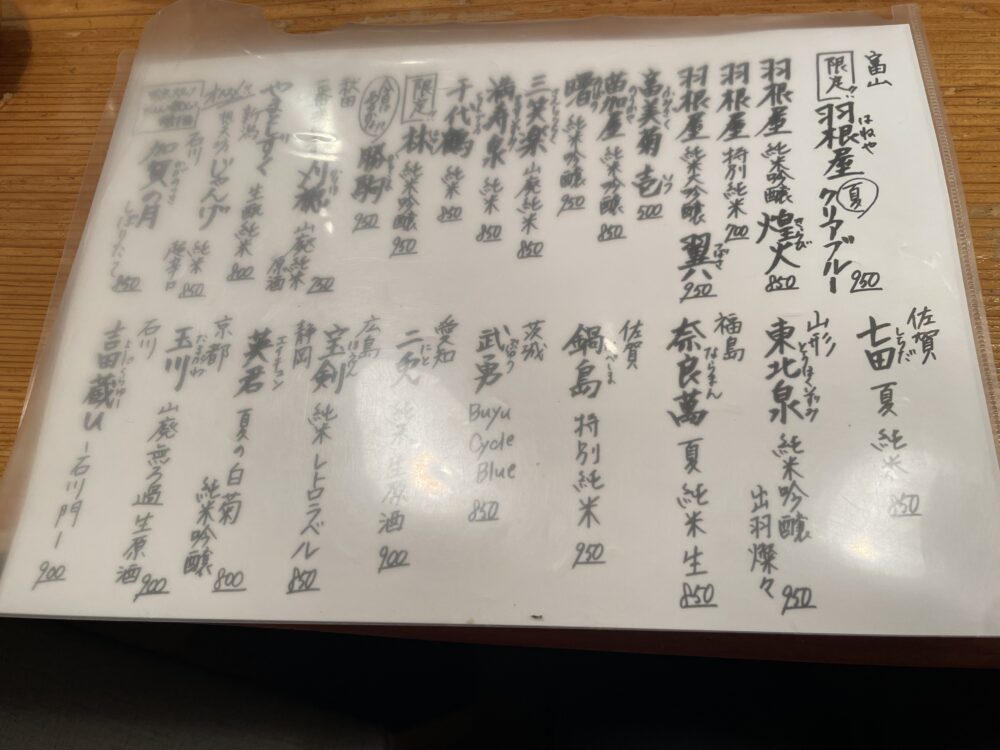 富山
限定!! 羽根屋 はねや 夏 クリアブルー 950
羽根屋 純米吟醸 煌火 きらび 850
羽根屋 特別純米 700
羽根屋 純米大吟醸 翼 つばさ 950
富美菊 壱 500
苗加屋 純米吟醸 850
曙 純米吟醸 950
三笑楽 山廃純米 850
満寿泉 純米 850
千代鶴 純米 850
限定!! 林 純米吟醸 950
勝駒 950
秋田
刈穂 山廃純米 750
やまとしずく 原酒
新潟
じゃんげ 生酛純米 800
石川
加賀ノ月 純米 超辛口 850
しぼりたて 850
佐賀
七田 しちだ 夏 純米 850
山形
東北泉 純米吟醸 出羽燦々 950
福島
奈良萬 ならまん 夏 純米 生 850
佐賀
鍋島 なべしま 特別純米 950
茨城
武勇 ぶゆう Buyu Cycle Blue 850
愛知
二兎 にと 純米 生原酒 900
広島
宝剣 ほうけん 純米 レトロラベル 850
静岡
英君 エイクン 夏の白菊 純米吟醸 800
京都
玉川 たまがわ 山廃 無ろ過 生原酒 900
石川
吉田蔵u ー石川門ー 900